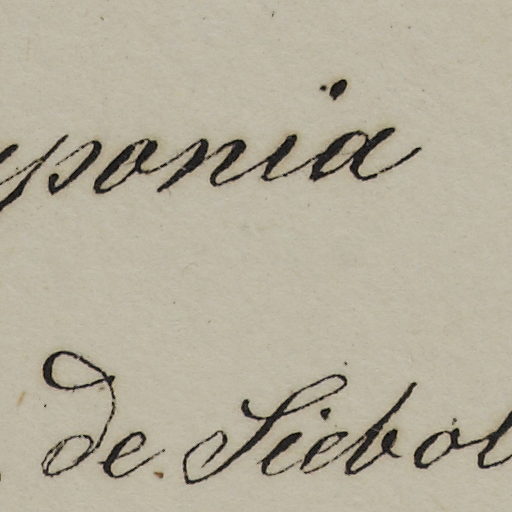 yponia
de Siebol